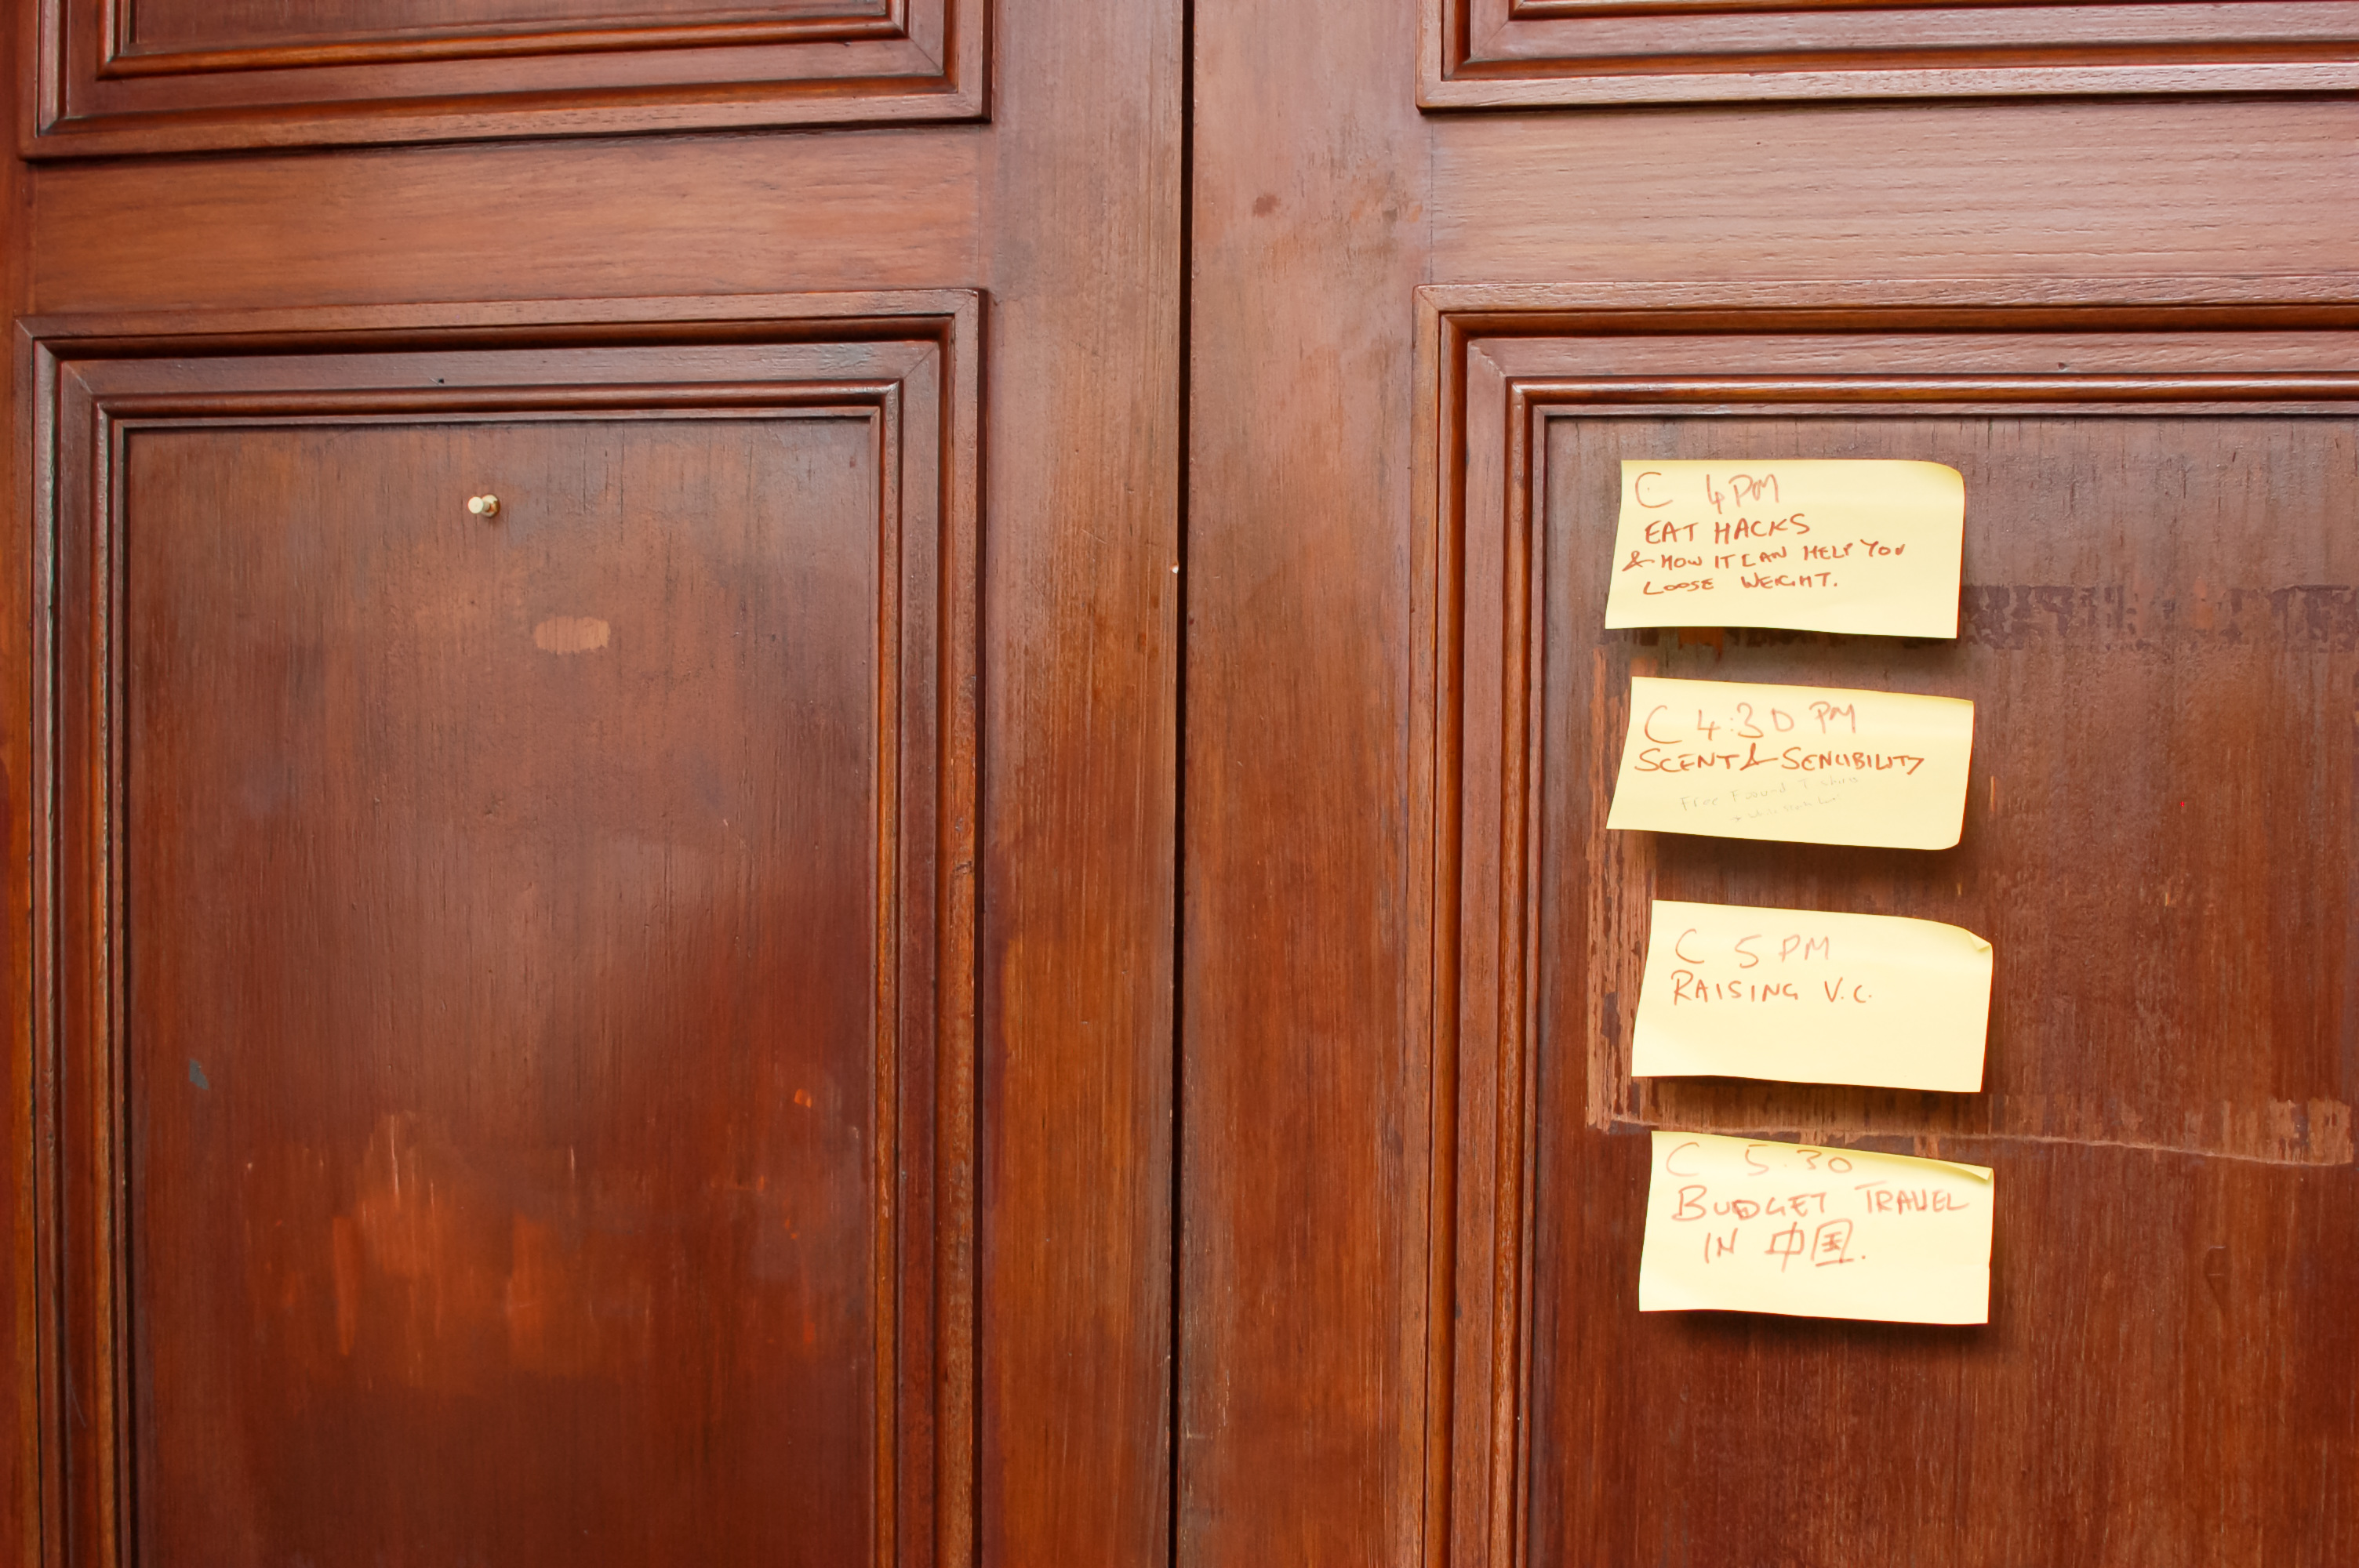 C 4PM
EAT HACKS
& HOW IT CAN HELP YOU
LOOSE WEIGHT.
C 4:30 PM
SCENT & SENCIBILITY
Free Found T-shirts
C 5 PM
RAISING V.C.
C 5.30
BUDGET TRAVEL
IN 中国.